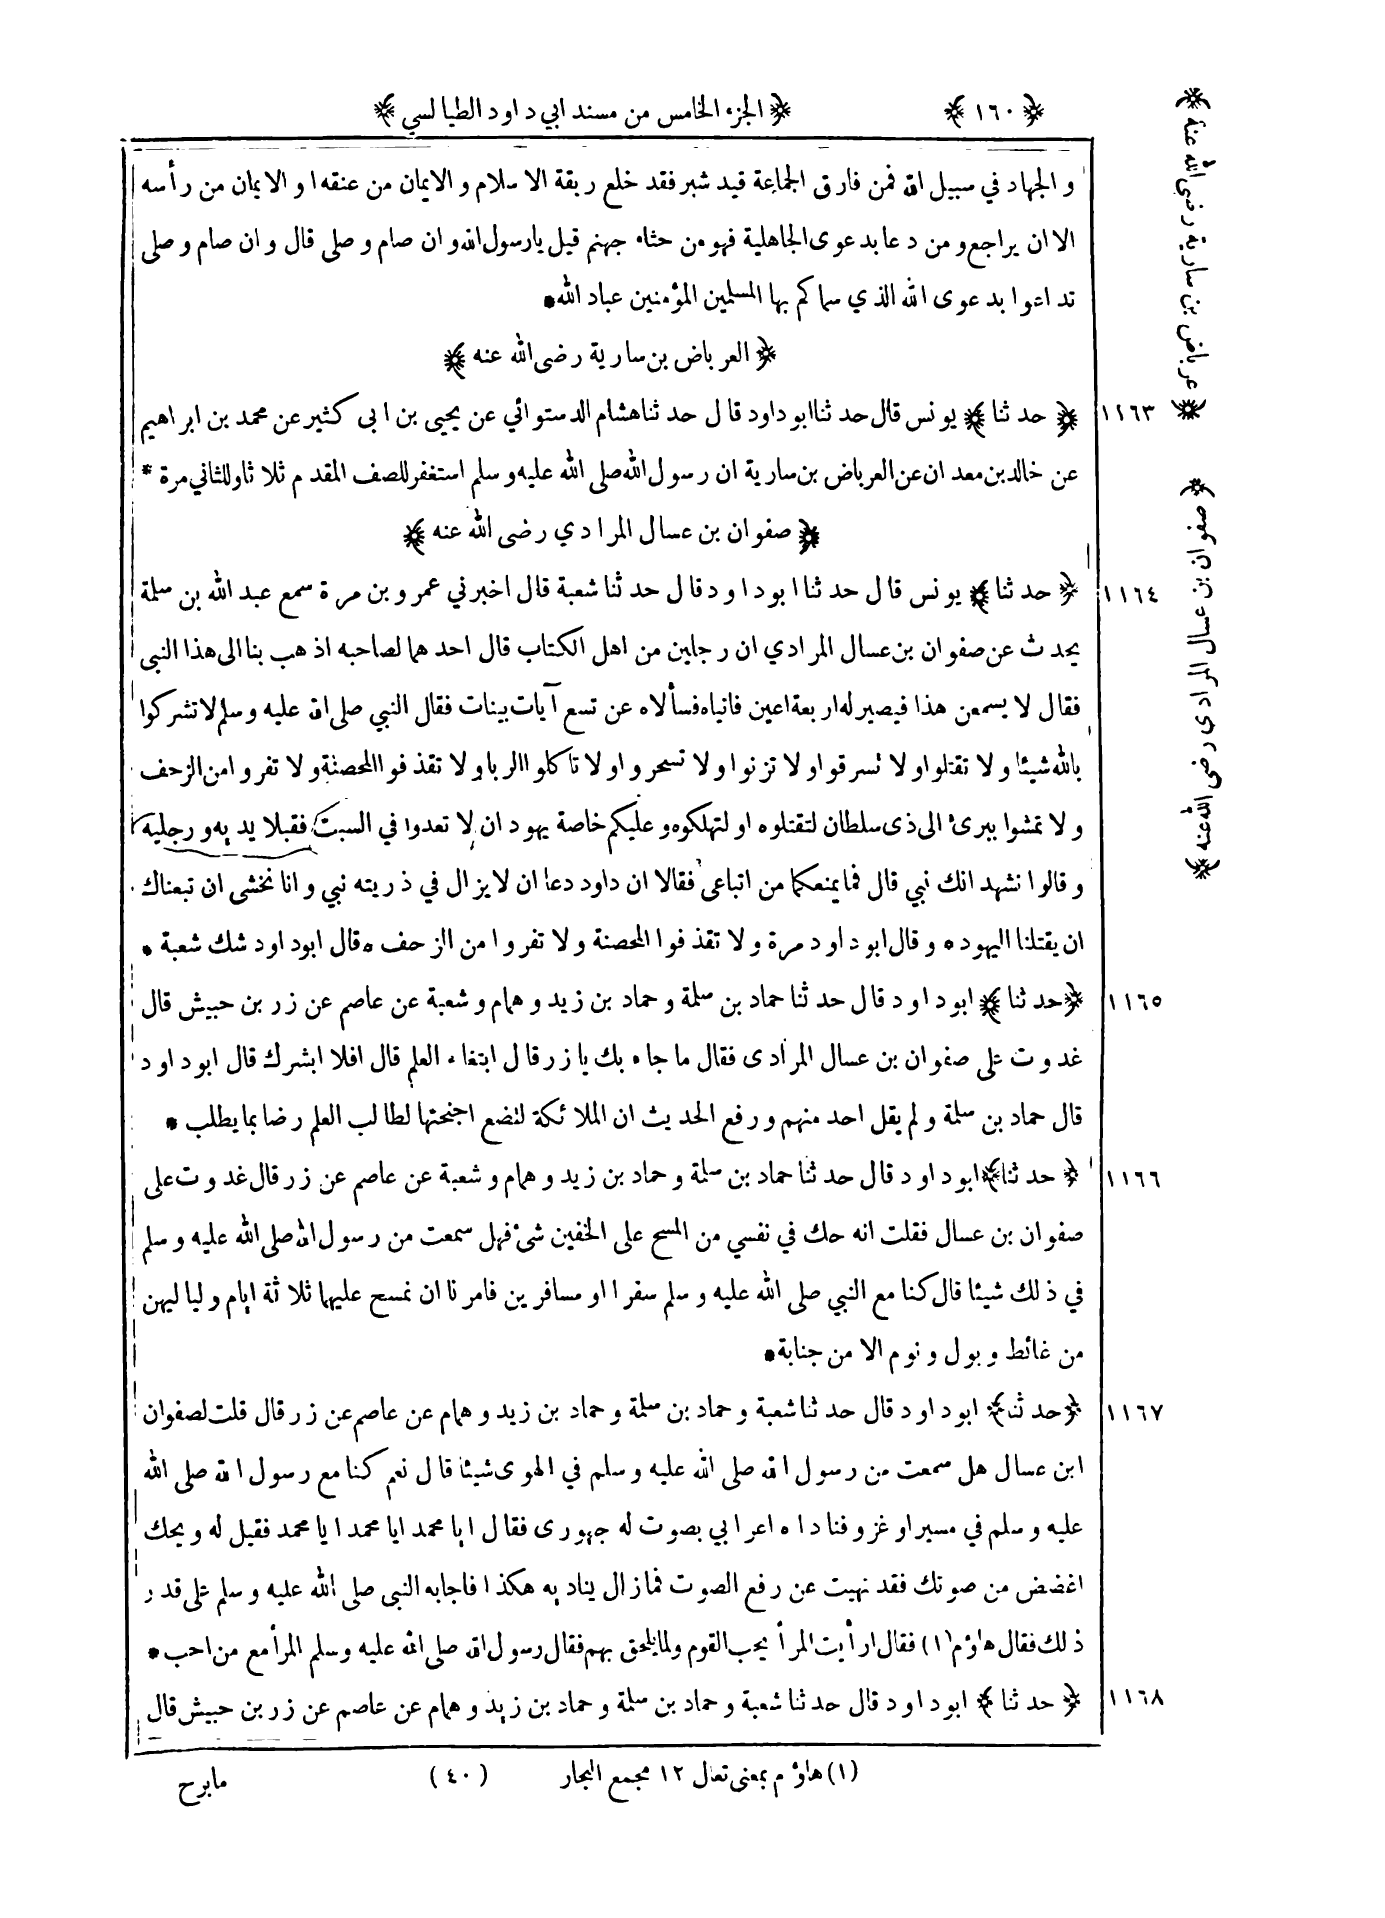 ﴿ ١٦٠ ﴾ ﴿ الجزء الخامس من مسند ابي داود الطيالسي ﴾
والجهاد في سبيل الله فمن فارق الجماعة قيد شبر فقد خلع ربقة الاسلام والايمان من عنقه او الايمان من رأسه
الا ان يراجع ومن دعا بدعوى الجاهلية فهو من حثاء جهنم قيل يا رسول الله وان صام وصلى قال وان صام وصلى
تداعوا بدعوى الله الذي سماكم بها المسلمين المؤمنين عباد الله •
﴿ العرباض بن سارية رضى الله عنه ﴾
١١٦٣ ﴿ حدثنا ﴾ يونس قال حدثنا ابوداود قال حدثنا هشام الدستوائي عن يحيى بن ابى كثير عن محمد بن ابراهيم
عن خالد بن معدان عن العرباض بن سارية ان رسول الله صلى الله عليه وسلم استغفر للصف المقدم ثلاثا وللثاني مرة *
﴿ صفوان بن عسال المرادي رضى الله عنه ﴾
١١٦٤ ﴿ حدثنا ﴾ يونس قال حدثنا ابوداود قال حدثنا شعبة قال اخبرني عمرو بن مرة سمع عبد الله بن سلمة
يحدث عن صفوان بن عسال المرادي ان رجلين من اهل الكتاب قال احدهما لصاحبه اذهب بنا الى هذا النبي
فقال لا يسمعن هذا فيصير له اربعة اعين فاتياه فسألاه عن تسع آيات بينات فقال النبي صلى الله عليه وسلم لا تشركوا
بالله شيئا ولا تقتلوا ولا تسرقوا ولا تزنوا ولا تسحروا ولا تاكلوا الربا ولا تقذفوا المحصنة ولا تفروا من الزحف
ولا تمشوا ببرئ الى ذى سلطان لتقتلوه او لتهلكوه وعليكم خاصة يهود ان لا تعدوا في السبت فقبلا يديه ورجليه
وقالوا نشهد انك نبي قال فما يمنعكما من اتباعى فقالا ان داود دعا ان لا يزال في ذريته نبي وانا نخشى ان تبعناك
ان يقتلنا اليهود ه وقال ابوداود مرة ولا تقذفوا المحصنة ولا تفروا من الزحف ه قال ابوداود شك شعبة •
١١٦٥ ﴿ حدثنا ﴾ ابوداود قال حدثنا حماد بن سلمة وحماد بن زيد وهمام وشعبة عن عاصم عن زر بن حبيش قال
غدوت على صفوان بن عسال المرادى فقال ما جاء بك يا زر قال ابتغاء العلم قال افلا ابشرك قال ابوداود
قال حماد بن سلمة ولم يقل احد منهم ورفع الحديث ان الملائكة لتضع اجنحتها لطالب العلم رضا بما يطلب •
١١٦٦ ﴿ حدثنا ﴾ ابوداود قال حدثنا حماد بن سلمة وحماد بن زيد وهمام وشعبة عن عاصم عن زر قال غدوت على
صفوان بن عسال فقلت انه حك في نفسي من المسح على الخفين شئ فهل سمعت من رسول الله صلى الله عليه وسلم
في ذلك شيئا قال كنا مع النبي صلى الله عليه وسلم سفرا او مسافرين فامرنا ان نمسح عليهما ثلاثة ايام ولياليهن
من غائط وبول ونوم الا من جنابة •
١١٦٧ ﴿ حدثنا ﴾ ابوداود قال حدثنا شعبة وحماد بن سلمة وحماد بن زيد وهمام عن عاصم عن زر قال قلت لصفوان
ابن عسال هل سمعت من رسول الله صلى الله عليه وسلم في الهوى شيئا قال نعم كنا مع رسول الله صلى الله
عليه وسلم في مسير او غزو فناداه اعرابي بصوت له جهورى فقال ايا محمد ايا محمد ايا محمد فقيل له ويحك
اغضض من صوتك فقد نهيت عن رفع الصوت فما زال يناديه هكذا فاجابه النبى صلى الله عليه وسلم على قدر
ذلك فقال هاؤم (١) فقال ارأيت المرأ يحب القوم ولما يلحق بهم فقال رسول الله صلى الله عليه وسلم المرأ مع من احب •
١١٦٨ ﴿ حدثنا ﴾ ابوداود قال حدثنا شعبة وحماد بن سلمة وحماد بن زيد وهمام عن عاصم عن زر بن حبيش قال
(١) هاؤم بمعنى تعال ١٢ مجمع البحار (٤٠) مابرح
﴿ عرباض بن سارية رضى الله عنه ﴾
﴿ صفوان بن عسال المرادي رضى الله عنه ﴾